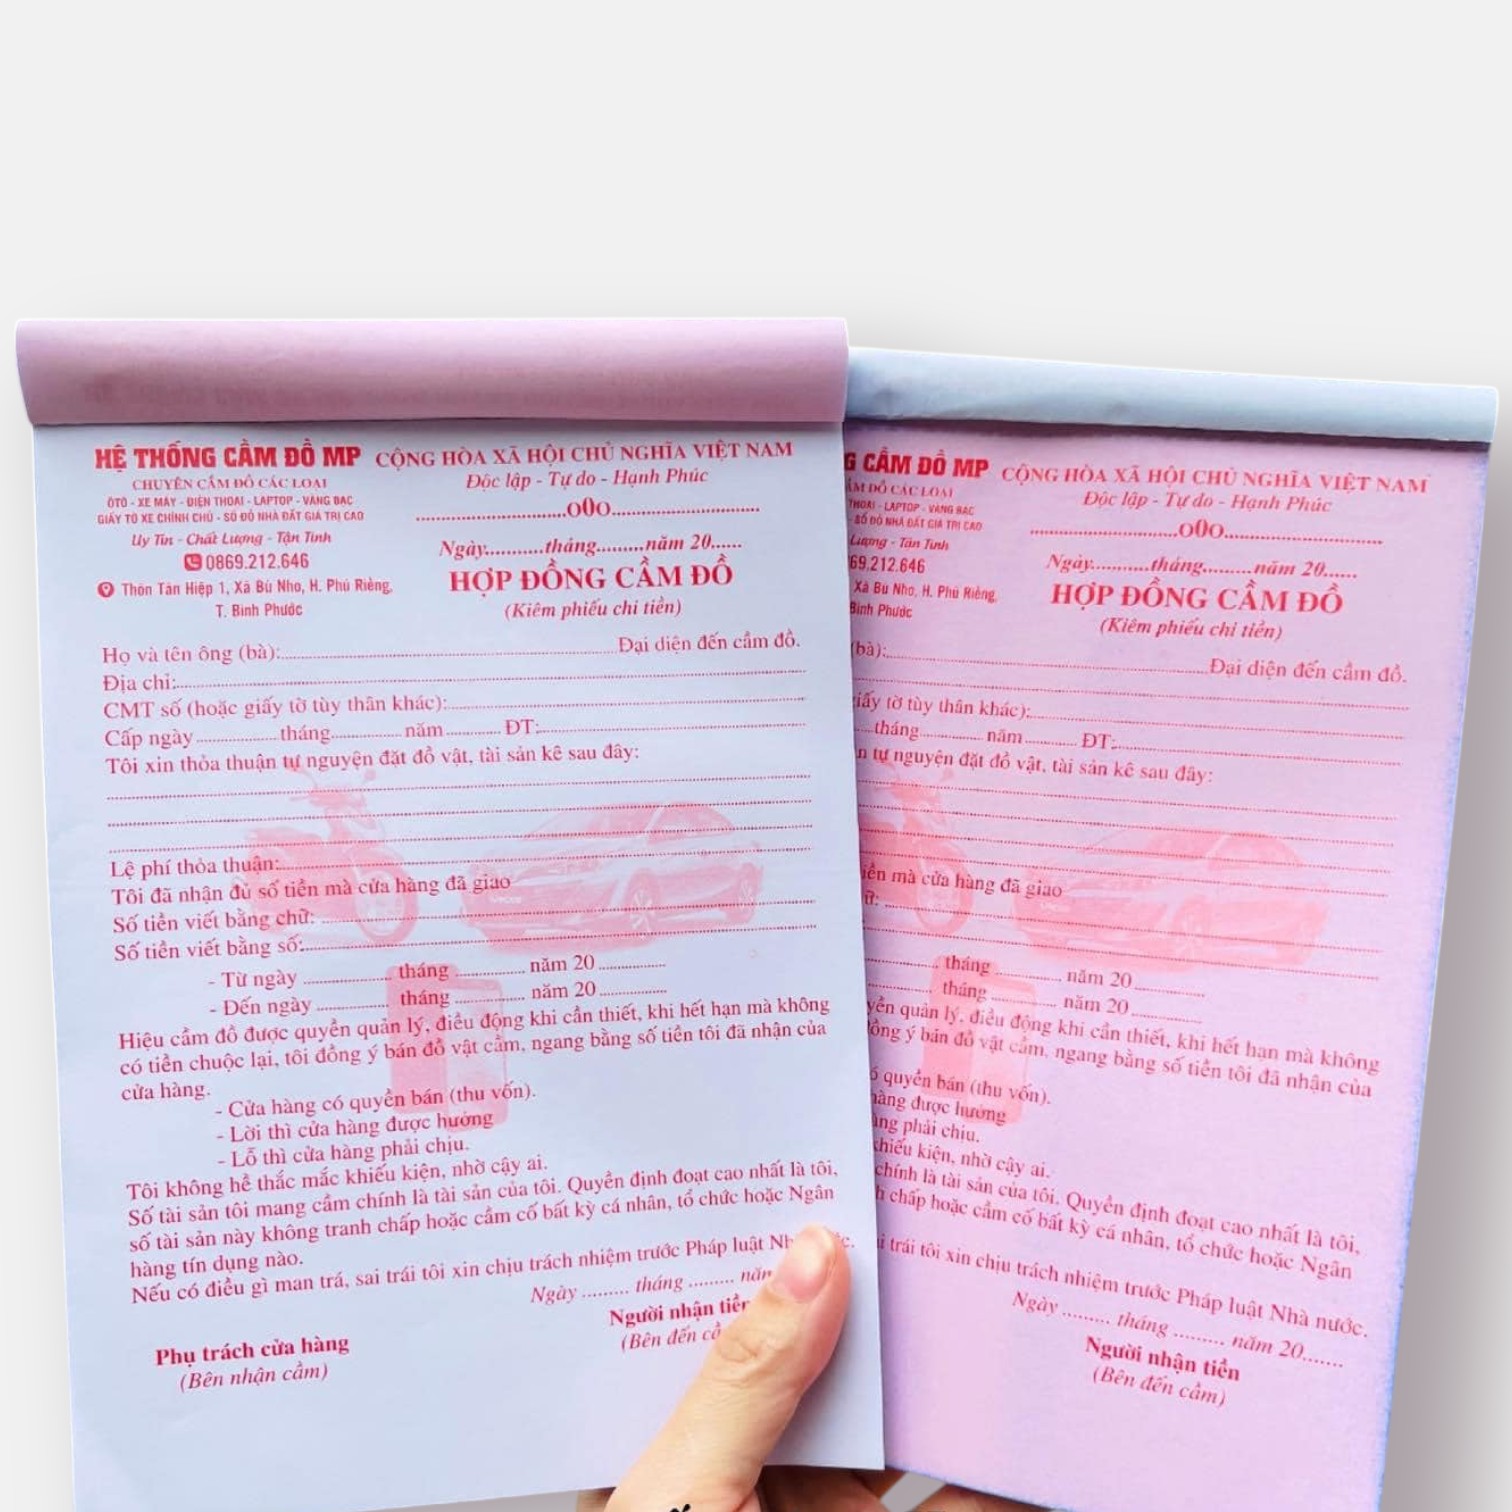 HỆ THỐNG CẦM ĐỒ MP
CHUYÊN CẦM ĐỒ CÁC LOẠI
ÔTÔ - XE MÁY - ĐIỆN THOẠI - LAPTOP - VÀNG BẠC
GIẤY TỜ XE CHÍNH CHỦ - SỔ ĐỎ NHÀ ĐẤT GIÁ TRỊ CAO
Uy Tín - Chất Lượng - Tận Tình
0869.212.646
Thôn Tân Hiệp 1, Xã Bù Nho, H. Phú Riềng,
T. Bình Phước
CỘNG HÒA XÃ HỘI CHỦ NGHĨA VIỆT NAM
Độc lập - Tự do - Hạnh Phúc
............................o0o............................
Ngày...........tháng.........năm 20......
HỢP ĐỒNG CẦM ĐỒ
(Kiêm phiếu chi tiền)
Họ và tên ông (bà):..............................Đại diện đến cầm đồ.
Địa chỉ:..............................
CMT số (hoặc giấy tờ tùy thân khác):..............................
Cấp ngày ............... tháng ............. năm ........... ĐT:..............................
Tôi xin thỏa thuận tự nguyện đặt đồ vật, tài sản kê sau đây:
Lệ phí thỏa thuận:..............................
Tôi đã nhận đủ số tiền mà cửa hàng đã giao
Số tiền viết bằng chữ: ..............................
Số tiền viết bằng số:..............................
- Từ ngày .............. tháng ............. năm 20 .............
- Đến ngày ............. tháng ............. năm 20 .............
Hiệu cầm đồ được quyền quản lý, điều động khi cần thiết, khi hết hạn mà không
có tiền chuộc lại, tôi đồng ý bán đồ vật cầm, ngang bằng số tiền tôi đã nhận của
cửa hàng.
- Cửa hàng có quyền bán (thu vốn).
- Lời thì cửa hàng được hưởng
- Lỗ thì cửa hàng phải chịu.
Tôi không hề thắc mắc khiếu kiện, nhờ cậy ai.
Số tài sản tôi mang cầm chính là tài sản của tôi. Quyền định đoạt cao nhất là tôi,
số tài sản này không tranh chấp hoặc cầm cố bất kỳ cá nhân, tổ chức hoặc Ngân
hàng tín dụng nào.
Nếu có điều gì man trá, sai trái tôi xin chịu trách nhiệm trước Pháp luật
Ngày ......... tháng .........
Phụ trách cửa hàng
(Bên nhận cầm)
Người nhận tiền
(Bên đến
CẦM ĐỒ MP
CỘNG HÒA XÃ HỘI CHỦ NGHĨA VIỆT NAM
Độc lập - Tự do - Hạnh Phúc
............................o0o............................
CÁC LOẠI
- LAPTOP - VÀNG BẠC
SỔ ĐỎ NHÀ ĐẤT GIÁ TRỊ CAO
Lượng - Tận Tình
69.212.646
Xã Bù Nho, H. Phú Riềng,
Bình Phước
Ngày...........tháng.........năm 20......
HỢP ĐỒNG CẦM ĐỒ
(Kiêm phiếu chi tiền)
(bà):..............................Đại diện đến cầm đồ.
giấy tờ tùy thân khác):..............................
....tháng............. năm ........... ĐT:..............................
tự nguyện đặt đồ vật, tài sản kê sau đây:
tiền mà cửa hàng đã giao
.............. tháng ............. năm 20 .............
.............. tháng ............. năm 20 .............
quản lý, điều động khi cần thiết, khi hết hạn mà không
đồng ý bán đồ vật cầm, ngang bằng số tiền tôi đã nhận của
có quyền bán (thu vốn).
hàng được hưởng
hàng phải chịu.
khiếu kiện, nhờ cậy ai.
chính là tài sản của tôi. Quyền định đoạt cao nhất là tôi,
chấp hoặc cầm cố bất kỳ cá nhân, tổ chức hoặc Ngân
trái tôi xin chịu trách nhiệm trước Pháp luật Nhà nước.
Ngày ......... tháng ......... năm 20.......
Người nhận tiền
(Bên đến cầm)